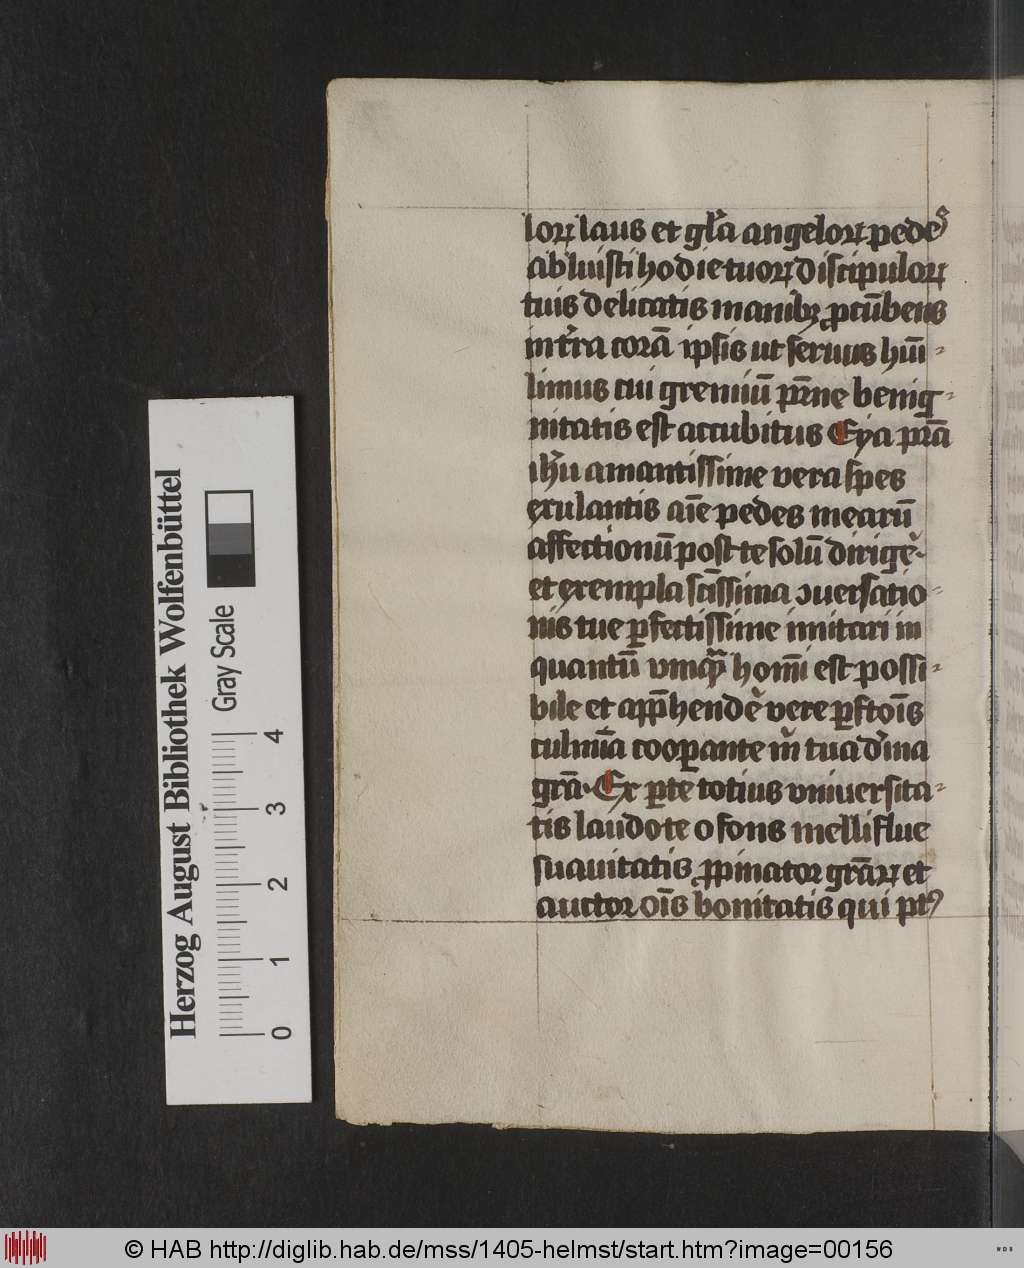 loꝝ laus et gl'a angeloꝝ pedes
abluisti hodie tuoꝝ discipuloꝝ
tuis delicatis manibꝫ ꝓcūbens
in t'ra corā ipsis ut seruus hūi
limus cui gremiū pr̄ne benig
nitatis est accubitus Eya
ih'u amantissime vera spes
exulantis aīe pedes mearū
affectionū post te solū dirige'
et exempla sc̄issima ɔuersatio
nis tue ꝑfectissime imitari in
quantū vmqᷓ homī est possi
bile et app̄hende' vere ꝑfc̄oīs
culmīa cooꝑante m' tua d'ina
grā. Ex ꝑte totius vniuersita
tis laudo te o fons melliflue
suauitatis ꝓpinator grāꝝ et
auctor oīs bonitatis qui
Herzog August Bibliothek Wolfenbüttel
Gray Scale
0 1 2 3 4
© HAB http://diglib.hab.de/mss/1405-helmst/start.htm?image=00156